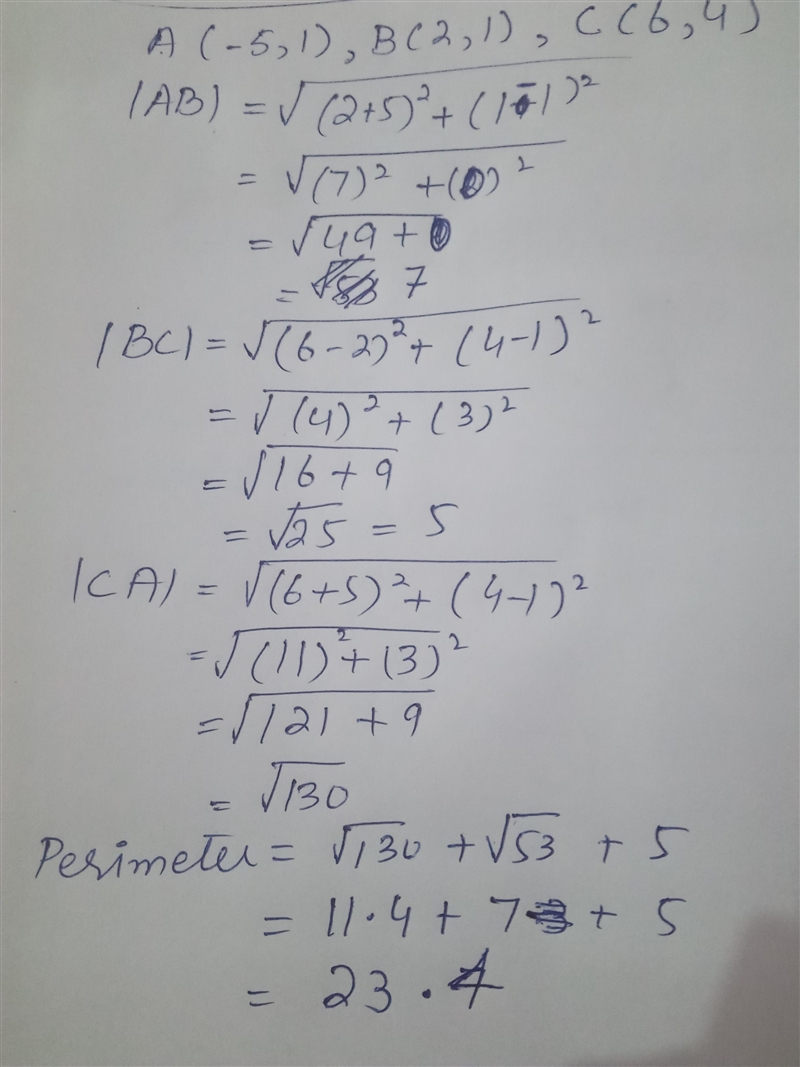 A (-5,1), B(2,1), C(6,4)
|AB| = √(2+5)² + (1-1)²
= √(7)² + (0)²
= √49 + 0
= 7
|BC| = √(6-2)² + (4-1)²
= √(4)² + (3)²
= √16 + 9
= √25 = 5
|CA| = √(6+5)² + (4-1)²
= √(11)² + (3)²
= √121 + 9
= √130
Perimeter = √130 + √53 + 5
= 11.4 + 7 + 5
= 23.4